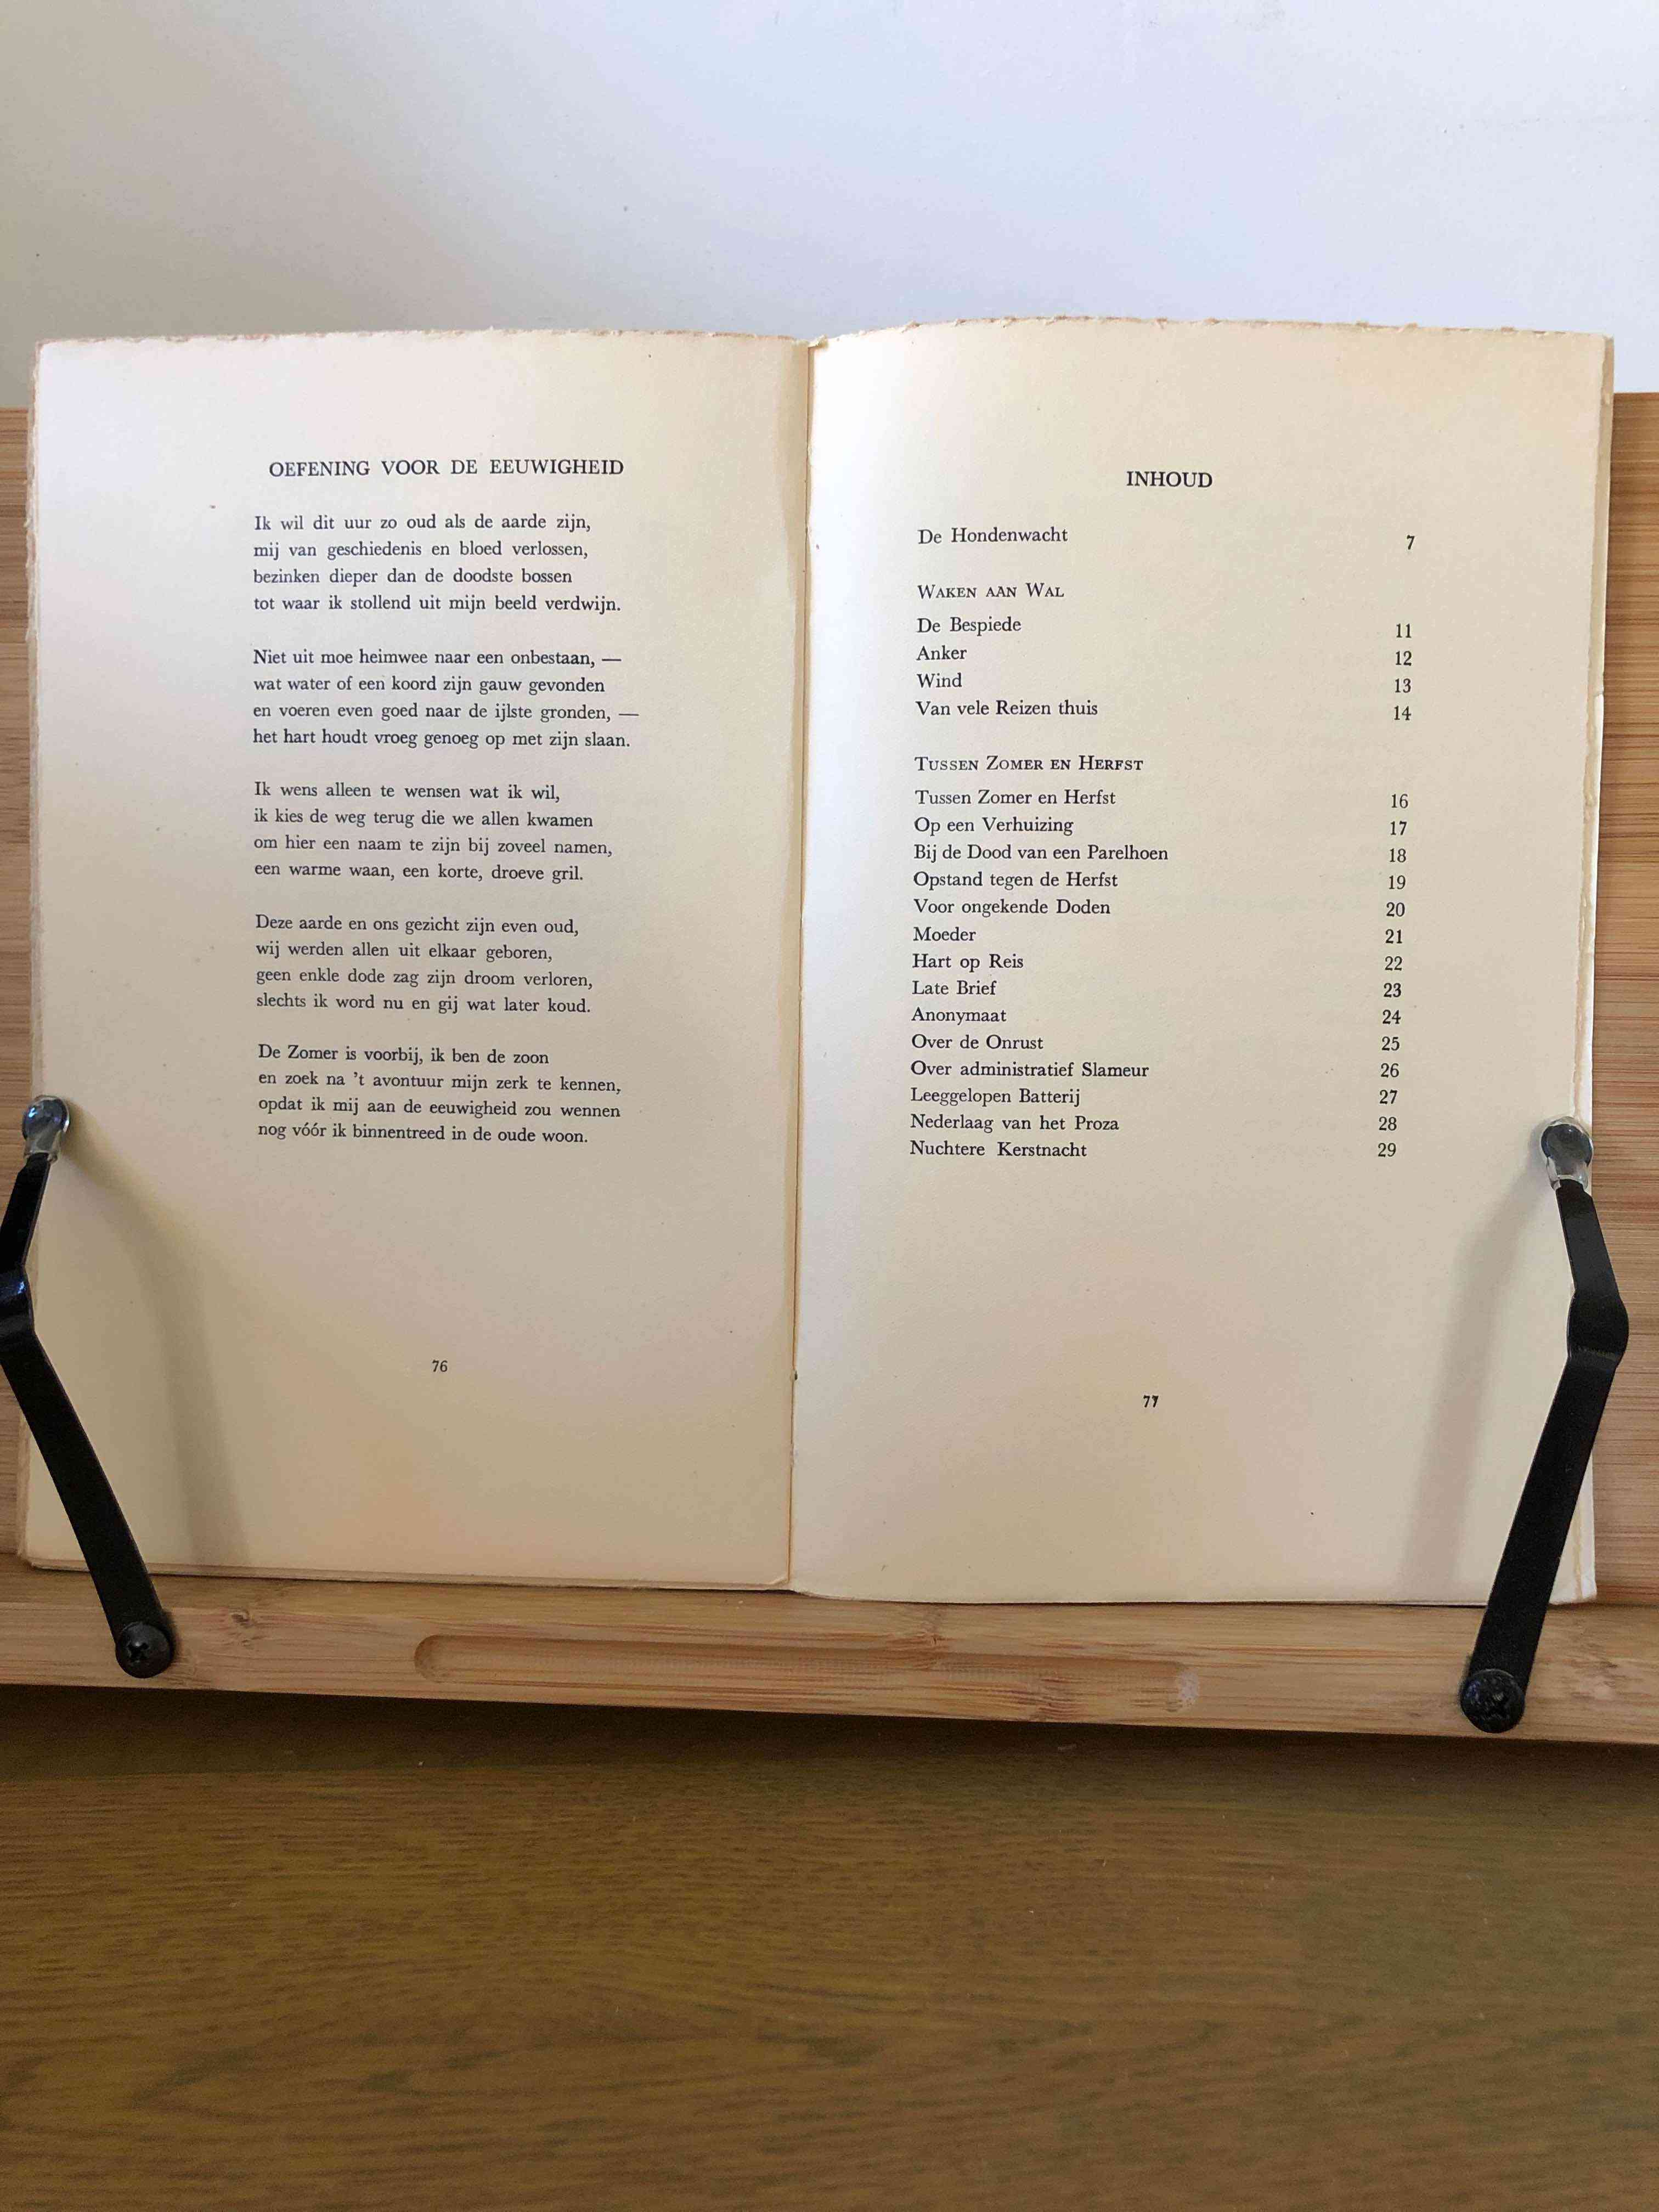 OEFENING VOOR DE EEUWIGHEID
Ik wil dit uur zo oud als de aarde zijn,
mij van geschiedenis en bloed verlossen,
bezinken dieper dan de doodste bossen
tot waar ik stollend uit mijn beeld verdwijn.
Niet uit moe heimwee naar een onbestaan, —
wat water of een koord zijn gauw gevonden
en voeren even goed naar de ijlste gronden, —
het hart houdt vroeg genoeg op met zijn slaan.
Ik wens alleen te wensen wat ik wil,
ik kies de weg terug die we allen kwamen
om hier een naam te zijn bij zoveel namen,
een warme waan, een korte, droeve gril.
Deze aarde en ons gezicht zijn even oud,
wij werden allen uit elkaar geboren,
geen enkle dode zag zijn droom verloren,
slechts ik word nu en gij wat later koud.
De Zomer is voorbij, ik ben de zoon
en zoek na 't avontuur mijn zerk te kennen,
opdat ik mij aan de eeuwigheid zou wennen
nog vóór ik binnentreed in de oude woon.
76
INHOUD
De Hondenwacht 7
WAKEN AAN WAL
De Bespiede 11
Anker 12
Wind 13
Van vele Reizen thuis 14
TUSSEN ZOMER EN HERFST
Tussen Zomer en Herfst 16
Op een Verhuizing 17
Bij de Dood van een Parelhoen 18
Opstand tegen de Herfst 19
Voor ongekende Doden 20
Moeder 21
Hart op Reis 22
Late Brief 23
Anonymaat 24
Over de Onrust 25
Over administratief Slameur 26
Leeggelopen Batterij 27
Nederlaag van het Proza 28
Nuchtere Kerstnacht 29
77